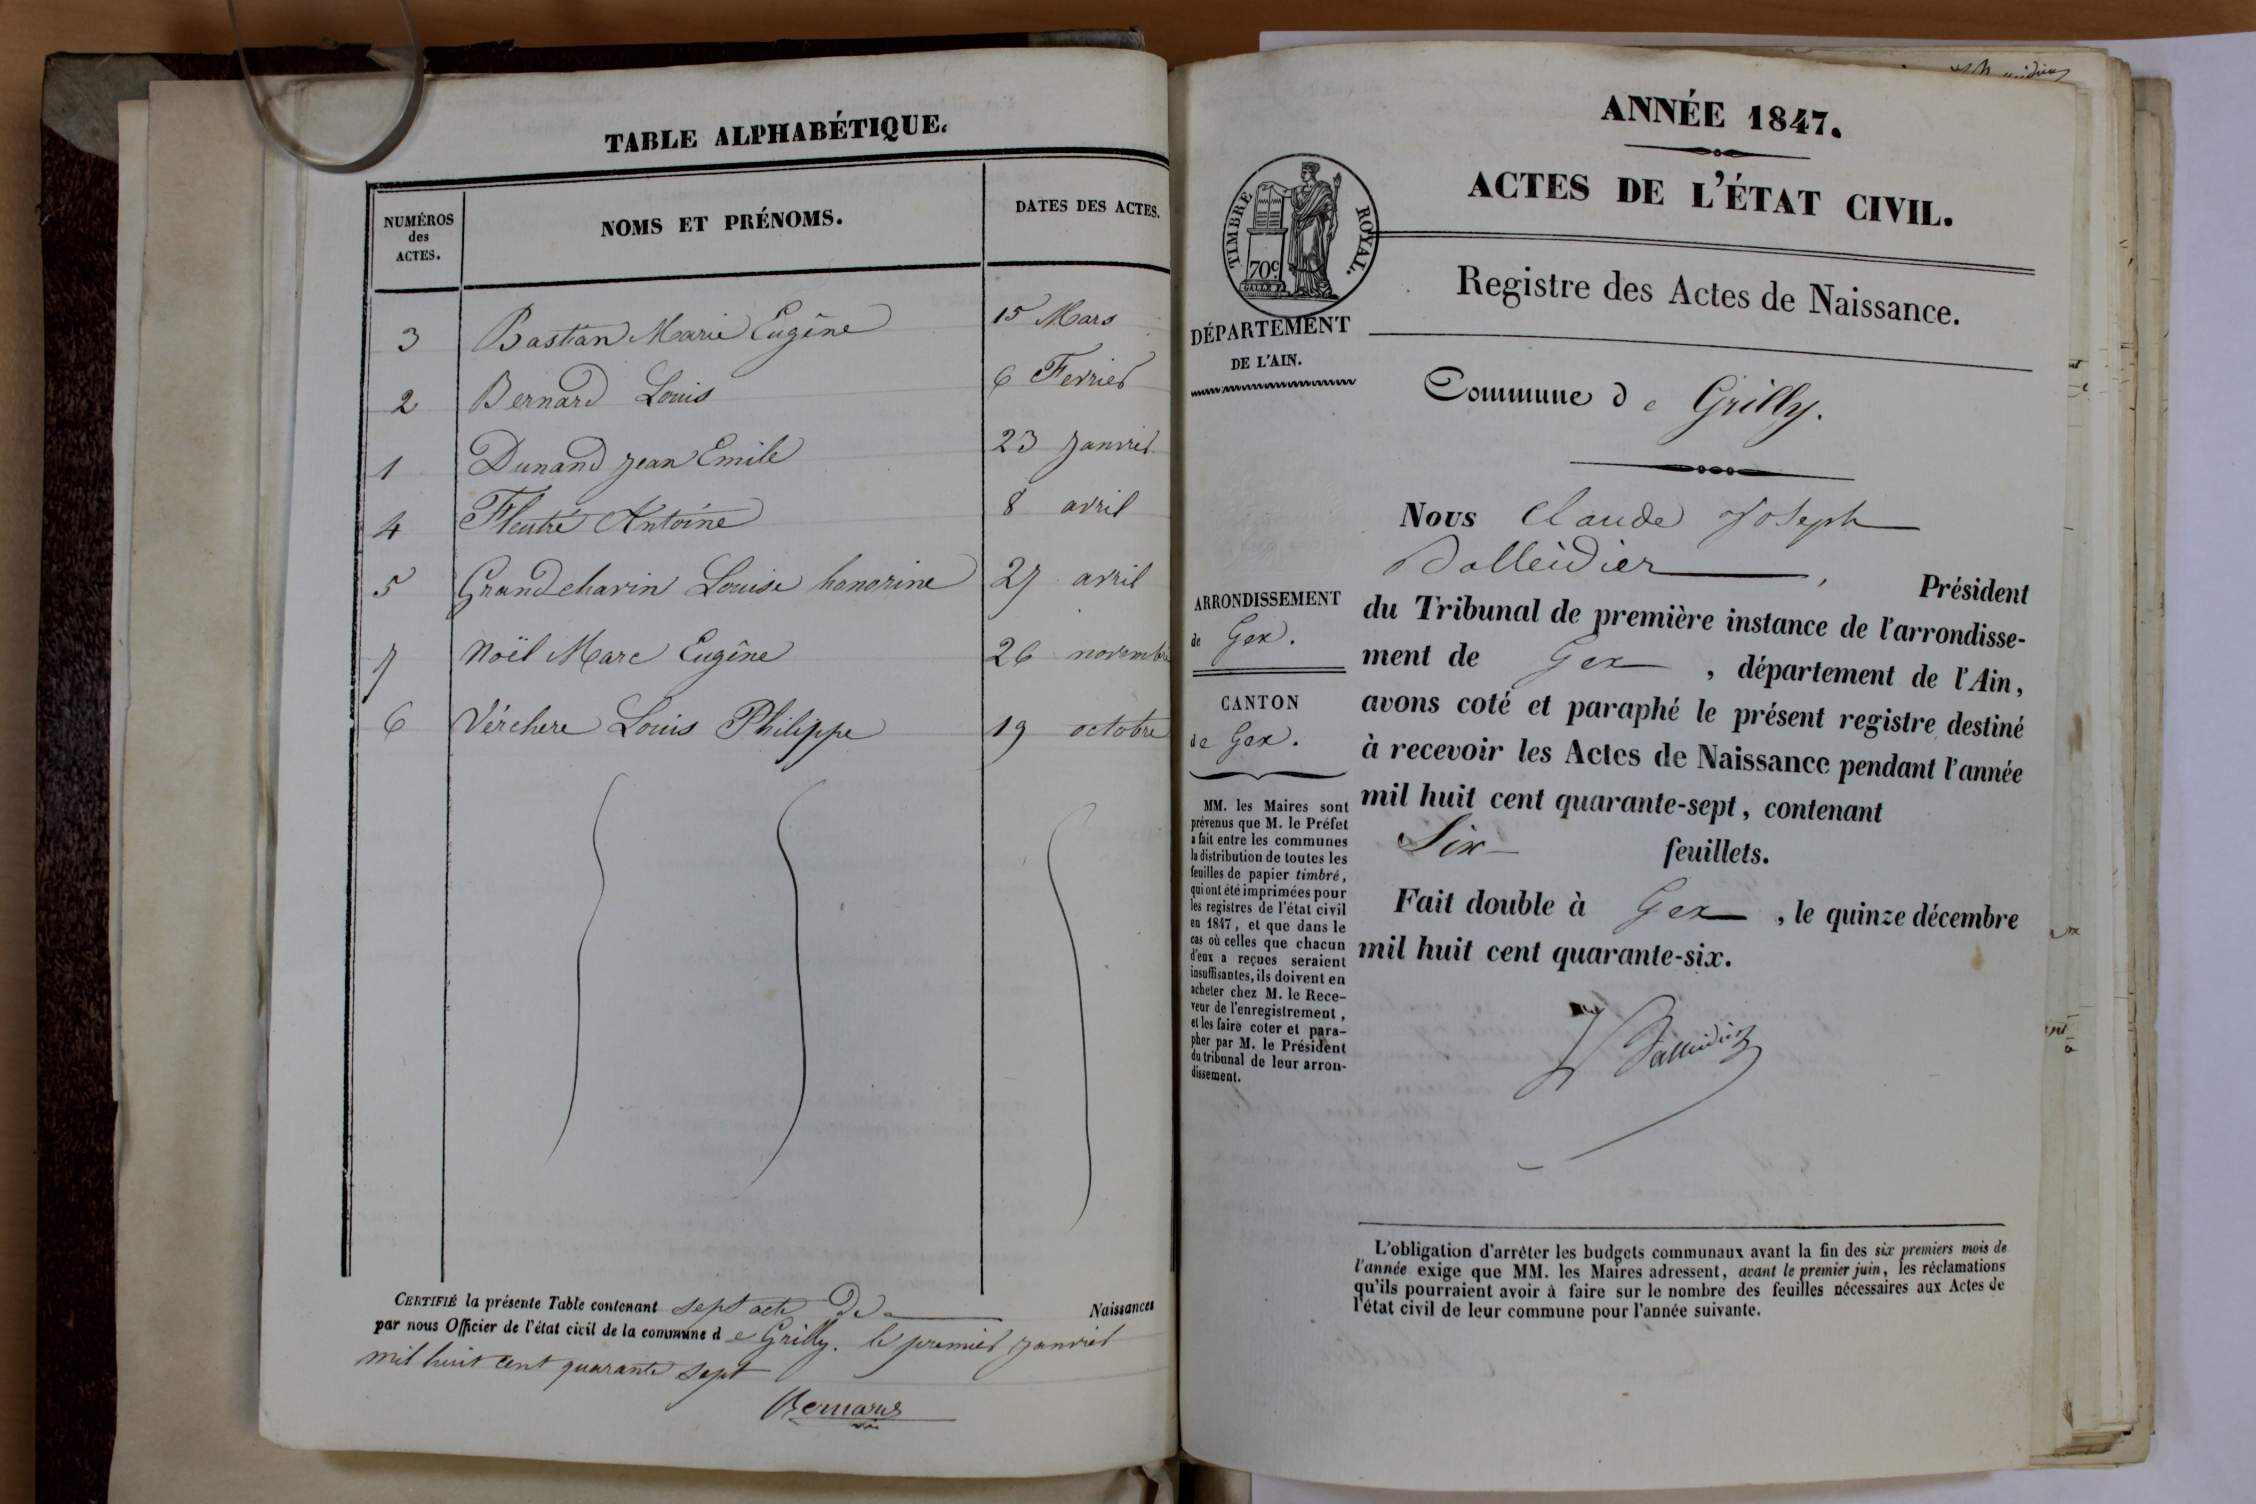 TABLE ALPHABÉTIQUE.
NUMÉROS des ACTES. NOMS ET PRÉNOMS. DATES DES ACTES.
3 Bastian Marie Eugêne 15 Mars
2 Bernard Louis 6 Fevrier
1 Dunand jean Emile 23 janvier
4 Fleutré Antoine 8 avril
5 Grandchavin Louise honorine 27 avril
7 Noël Marc Eugêne 26 novembre
6 Vérchere Louis Philippe 19 octobre
CERTIFIÉ la présente Table contenant sept acte De Naissances
par nous Officier de l'état civil de la commune d e Grilly. le premier janvier
mil huit cent quarante sept
Bernard
ANNÉE 1847.
ACTES DE L'ÉTAT CIVIL.
TIMBRE ROYAL.
70c
Registre des Actes de Naissance.
DÉPARTEMENT
DE L'AIN.
Commune d e Grilly.
ARRONDISSEMENT
de Gex.
CANTON
de Gex.
MM. les Maires sont
prévenus que M. le Préfet
a fait entre les communes
la distribution de toutes les
feuilles de papier timbré,
qui ont été imprimées pour
les registres de l'état civil
en 1847, et que dans le
cas où celles que chacun
d'eux a reçues seraient
insuffisantes, ils doivent en
acheter chez M. le Rece-
veur de l'enregistrement,
et les faire coter et para-
pher par M. le Président
du tribunal de leur arron-
dissement.
Nous Claude Joseph
Dalleidier, Président
du Tribunal de première instance de l'arrondisse-
ment de Gex, département de l'Ain,
avons coté et paraphé le présent registre destiné
à recevoir les Actes de Naissance pendant l'année
mil huit cent quarante-sept, contenant
Six feuillets.
Fait double à Gex, le quinze décembre
mil huit cent quarante-six.
Dalleidier
L'obligation d'arrêter les budgets communaux avant la fin des six premiers mois de
l'année exige que MM. les Maires adressent, avant le premier juin, les réclamations
qu'ils pourraient avoir à faire sur le nombre des feuilles nécessaires aux Actes de
l'état civil de leur commune pour l'année suivante.